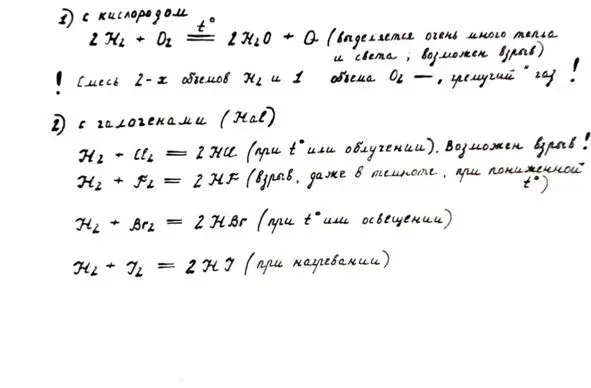 1) с кислородом
2H₂ + O₂ =t°= 2H₂O + Q (выделяется очень много тепла
и света; возможен взрыв)
! Смесь 2-х объемов H₂ и 1 объема O₂ — „гремучий" газ !
2) с галогенами (Hal)
H₂ + Cl₂ = 2HCl (при t° или облучении). Возможен взрыв!
H₂ + F₂ = 2HF (взрыв, даже в темноте, при пониженной
t°)
H₂ + Br₂ = 2HBr (при t° или освещении)
H₂ + J₂ = 2HJ (при нагревании)